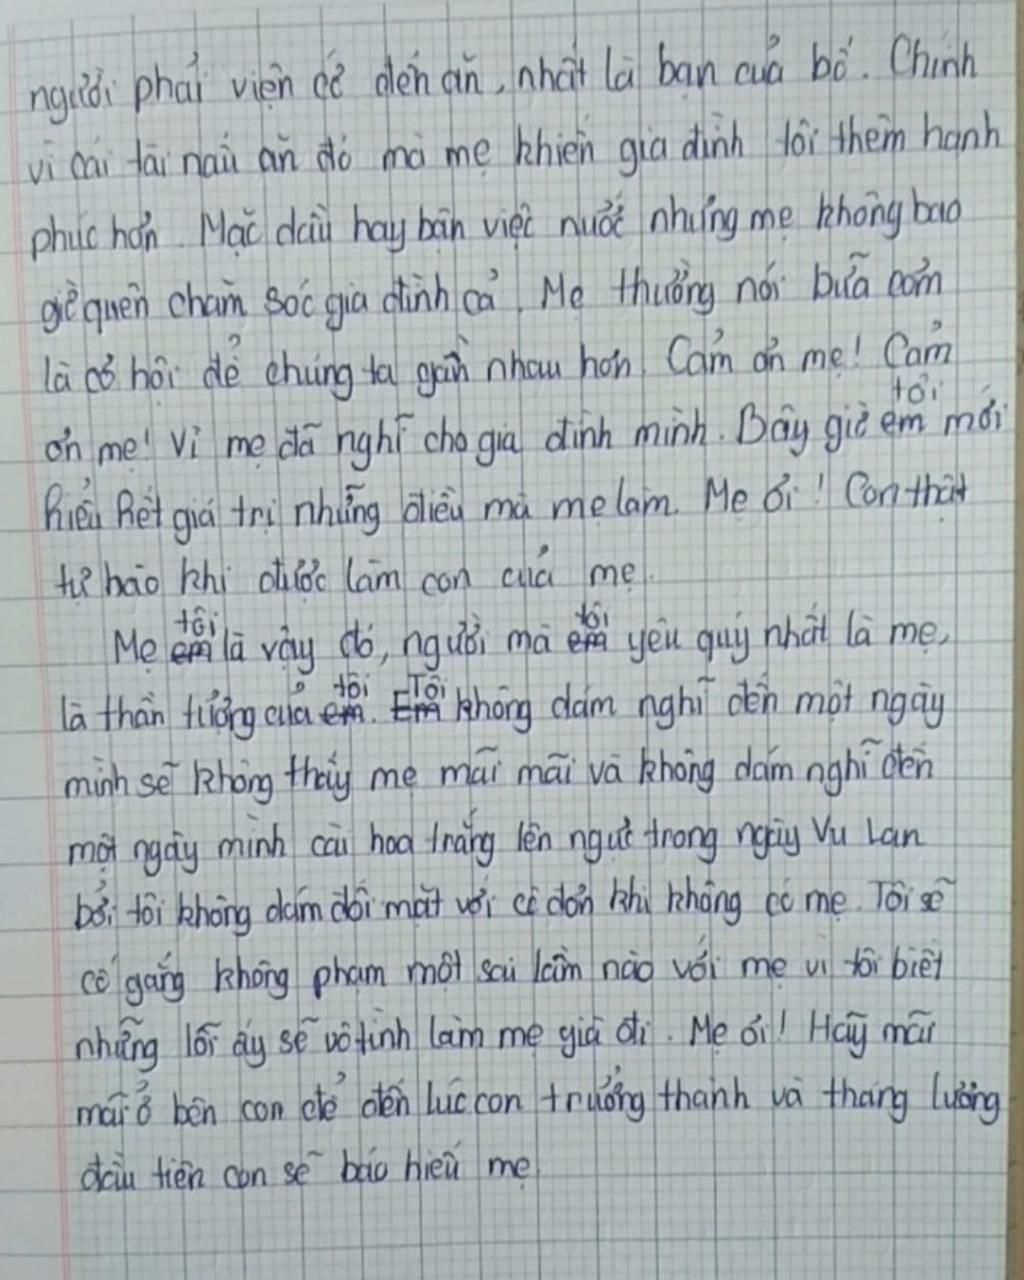 người phải viện cớ đến ăn, nhất là bạn của bố. Chính
vì cái tài nấu ăn đó mà mẹ khiến gia đình tôi thêm hạnh
phúc hơn. Mặc dầu hay bận việc nước nhưng mẹ không bao
giờ quên chăm sóc gia đình cả. Mẹ thường nói bữa cơm
là cơ hội để chúng ta gần nhau hơn. Cảm ơn mẹ! Cảm
ơn mẹ! Vì mẹ đã nghĩ cho gia đình mình. Bây giờ em tôi mới
hiểu hết giá trị những điều mà mẹ làm. Mẹ ơi! Con thật
tự hào khi được làm con của mẹ.
Mẹ em tôi là vậy đó, người mà em tôi yêu quý nhất là mẹ,
là thần tượng của em tôi. Em Tôi không dám nghĩ đến một ngày
mình sẽ không thấy mẹ mãi mãi và không dám nghĩ đến
một ngày mình cài hoa trắng lên ngực trong ngày Vu Lan
bởi tôi không dám đối mặt với cô đơn khi không có mẹ. Tôi sẽ
cố gắng không phạm một sai lầm nào với mẹ vì tôi biết
những lỗi ấy sẽ vô tình làm mẹ già đi. Mẹ ơi! Hãy mãi
mãi ở bên con để đến lúc con trưởng thành và tháng lương
đầu tiên con sẽ báo hiếu mẹ